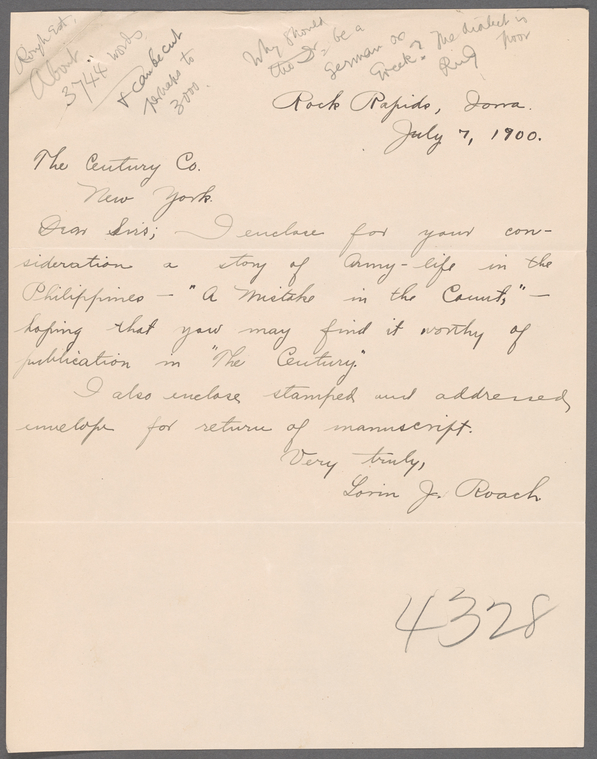 Rough Est.
About
3744 words
& can be cut
perhaps to
3000.
Why should
the Dr. be a
German or
Greek? The dialect is
poor
Rock Rapids, Iowa.
July 7, 1900.
The Century Co.
New York.
Dear Sirs; — I enclose for your con-
sideration a story of Army-life in the
Philippines — "A Mistake in the Count," —
hoping that you may find it worthy of
publication in "The Century."
I also enclose stamped and addressed
envelope for return of manuscript.
Very truly,
Lorin J. Roach
4328